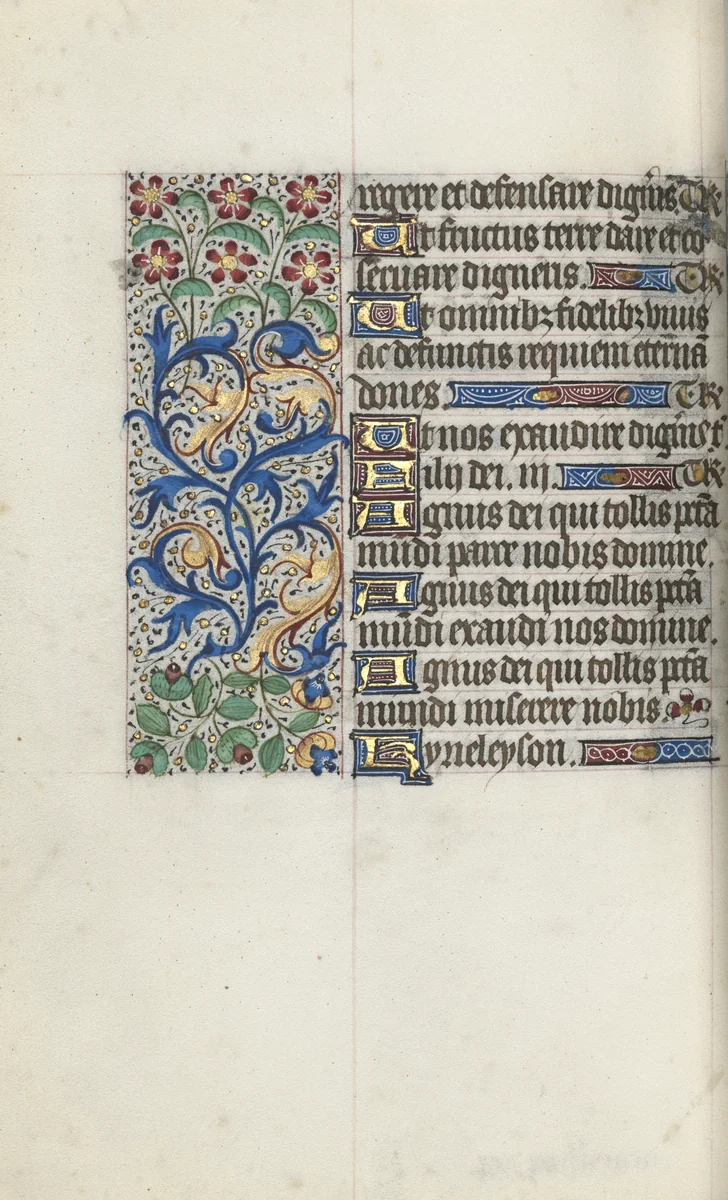 regere et defensare digñis. TR
Ut fructus terre dare et co
seruare digneris. TR
Ut omnibz fidelibz viuis
ac defunctis requiem eternã
dones. TR
Ut nos exaudire digñis t
Filii dei. iii. TR
Agnus dei qui tollis pctã
mũdi parce nobis domine.
Agnus dei qui tollis pctã
mũdi exaudi nos domine.
Agnus dei qui tollis pctã
mundi miserere nobis.
Kyrieleyson.